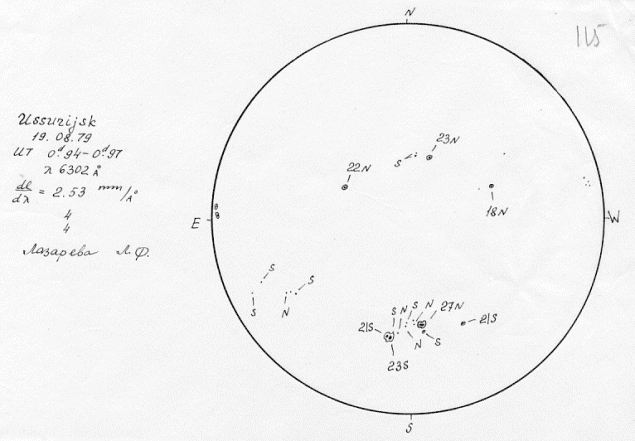 N
115
Ussurijsk
19.08.79
UT 0.ᵈ94-0.ᵈ97
λ 6302 Å
dl/dλ = 2.53 mm/Å
4
4
Лазарева Л.Ф.
23N
S
22N
18N
E
W
S
S
S
N
S N S N 27N
21S
21S
N
S
23S
S